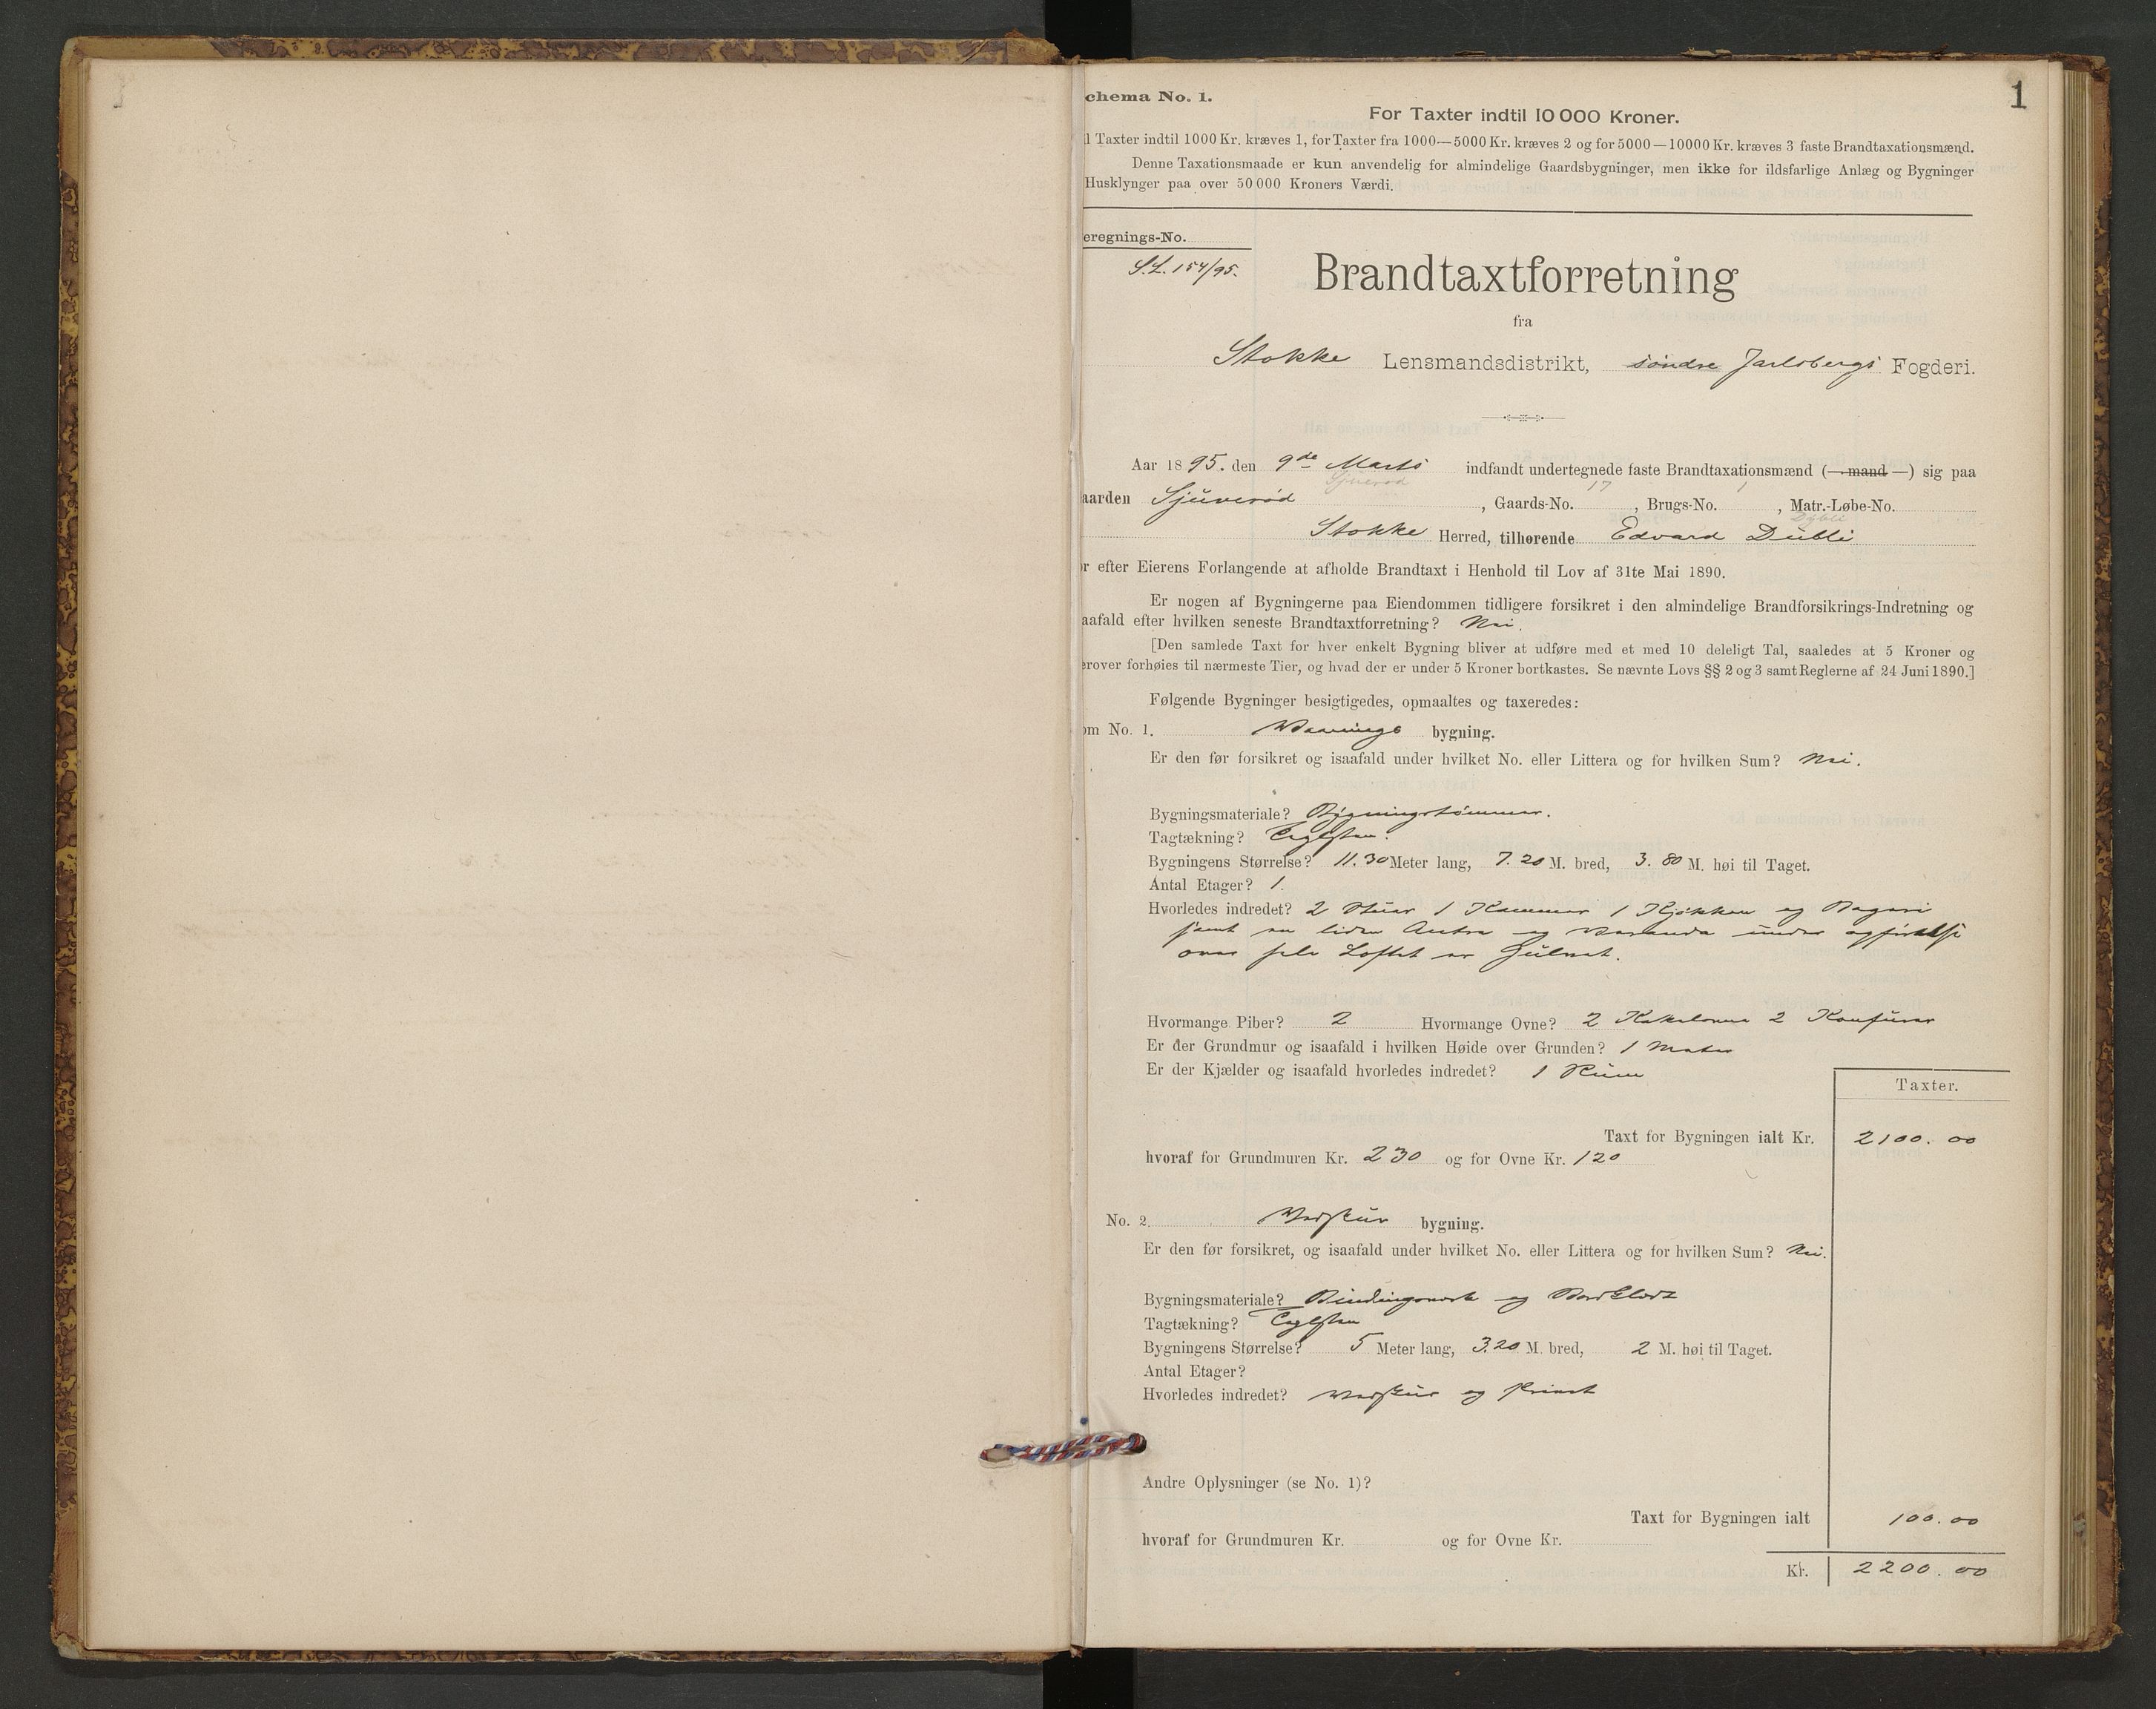 1
chema No. 1.
For Taxter indtil 10 000 Kroner.
l Taxter indtil 1000 Kr. kræves 1, for Taxter fra 1000—5000 Kr. kræves 2 og for 5000—10000 Kr. kræves 3 faste Brandtaxationsmænd.
Denne Taxationsmaade er kun anvendelig for almindelige Gaardsbygninger, men ikke for ildsfarlige Anlæg og Bygninger
Husklynger paa over 50 000 Kroners Værdi.
eregnings-No.
S.L. 154/95.
Brandtaxtforretning
fra
Stokke Lensmandsdistrikt, søndre Jarlsbergs Fogderi.
Aar 1895. den 9de Marts indfandt undertegnede faste Brandtaxationsmænd (— mand —) sig paa
Sjuerød 17 1
aarden Sjuverød, Gaards-No. , Brugs-No. , Matr.-Løbe-No.
Dybli
Stokke Herred, tilhørende Edvard Dübli
r efter Eierens Forlangende at afholde Brandtaxt i Henhold til Lov af 31te Mai 1890.
Er nogen af Bygningerne paa Eiendommen tidligere forsikret i den almindelige Brandforsikrings-Indretning og
aafald efter hvilken seneste Brandtaxtforretning? Nei.
[Den samlede Taxt for hver enkelt Bygning bliver at udføre med et med 10 deleligt Tal, saaledes at 5 Kroner og
erover forhøies til nærmeste Tier, og hvad der er under 5 Kroner bortkastes. Se nævnte Lovs §§ 2 og 3 samt Reglerne af 24 Juni 1890.]
Følgende Bygninger besigtigedes, opmaaltes og taxeredes:
om No. 1. Vaanings bygning.
Er den før forsikret og isaafald under hvilket No. eller Littera og for hvilken Sum? Nei.
Bygningsmateriale? Bygningstømmer.
Tagtækning? Teglsten.
Bygningens Størrelse? 11.30 Meter lang, 7.20 M. bred, 3.80 M. høi til Taget.
Antal Etager? 1.
Hvorledes indredet? 2 Stuer 1 Kammer 1 Kjøkken og Bageri
samt en liden Entre og Veranda under
over hele Loftet er Gulvet.
Hvormange Piber? 2 Hvormange Ovne? 2 Kakelovne 2 Komfurer
Er der Grundmur og isaafald i hvilken Høide over Grunden? 1 Meter
Er der Kjælder og isaafald hvorledes indredet? 1 Rum
Taxter.
Taxt for Bygningen ialt Kr. 2100.00
hvoraf for Grundmuren Kr. 230 og for Ovne Kr. 120
No. 2. Vedskur bygning.
Er den før forsikret, og isaafald under hvilket No. eller Littera og for hvilken Sum? Nei.
Bygningsmateriale? Bindingsverk og Bordklædt
Tagtækning? Teglsten
Bygningens Størrelse? 5 Meter lang, 3.20 M. bred, 2 M. høi til Taget.
Antal Etager?
Hvorledes indredet? Vedskur og Privet
Andre Oplysninger (se No. 1)?
Taxt for Bygningen ialt 100.00
hvoraf for Grundmuren Kr. og for Ovne Kr.
Kr. 2200.00